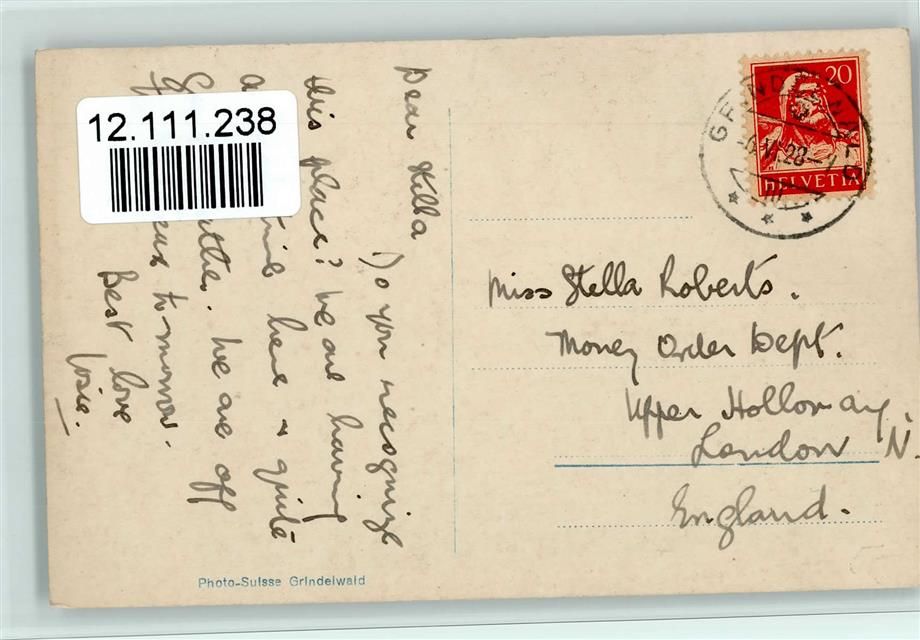 12.111.238
Dear Stella
Do you recognize
this place? We are having
a time here & quite
We are off
to-morrow.
Best love
Photo-Suisse Grindelwald
20
HELVETIA
GRINDELWALD
VI.28
Miss Stella Roberts.
Money Order Dept.
Upper Holloway.
London N.
England.